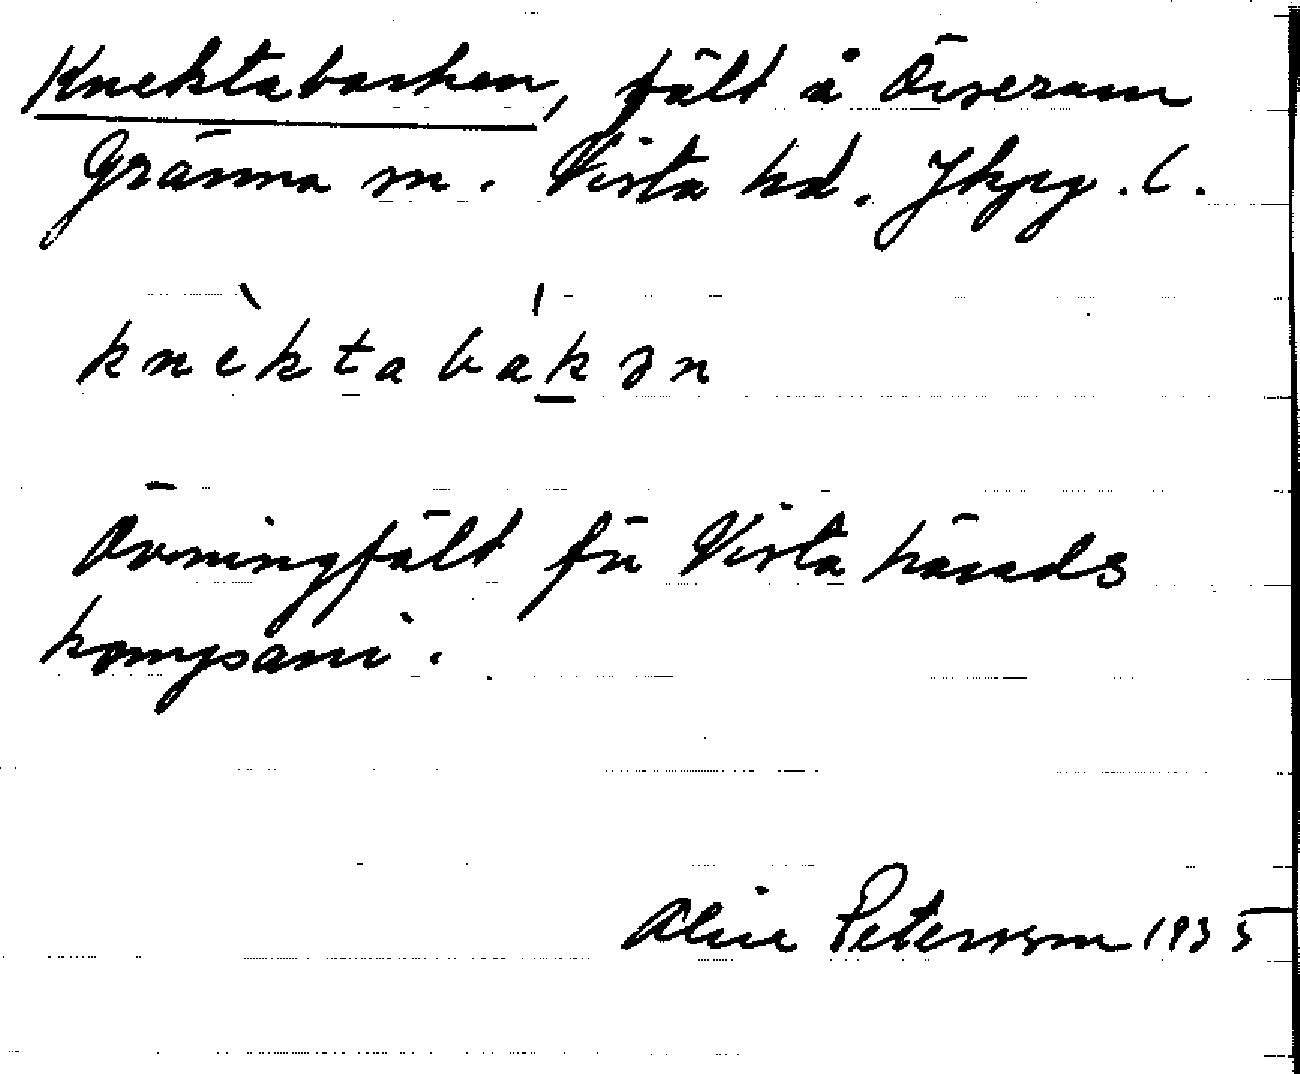 Knektabacken, fält å Öiserum
Gränna sn. Vista hd. Jkpg. l.
knèktabákən
Övningfält för Vista härads
kompani.
Alice Petersson 1935